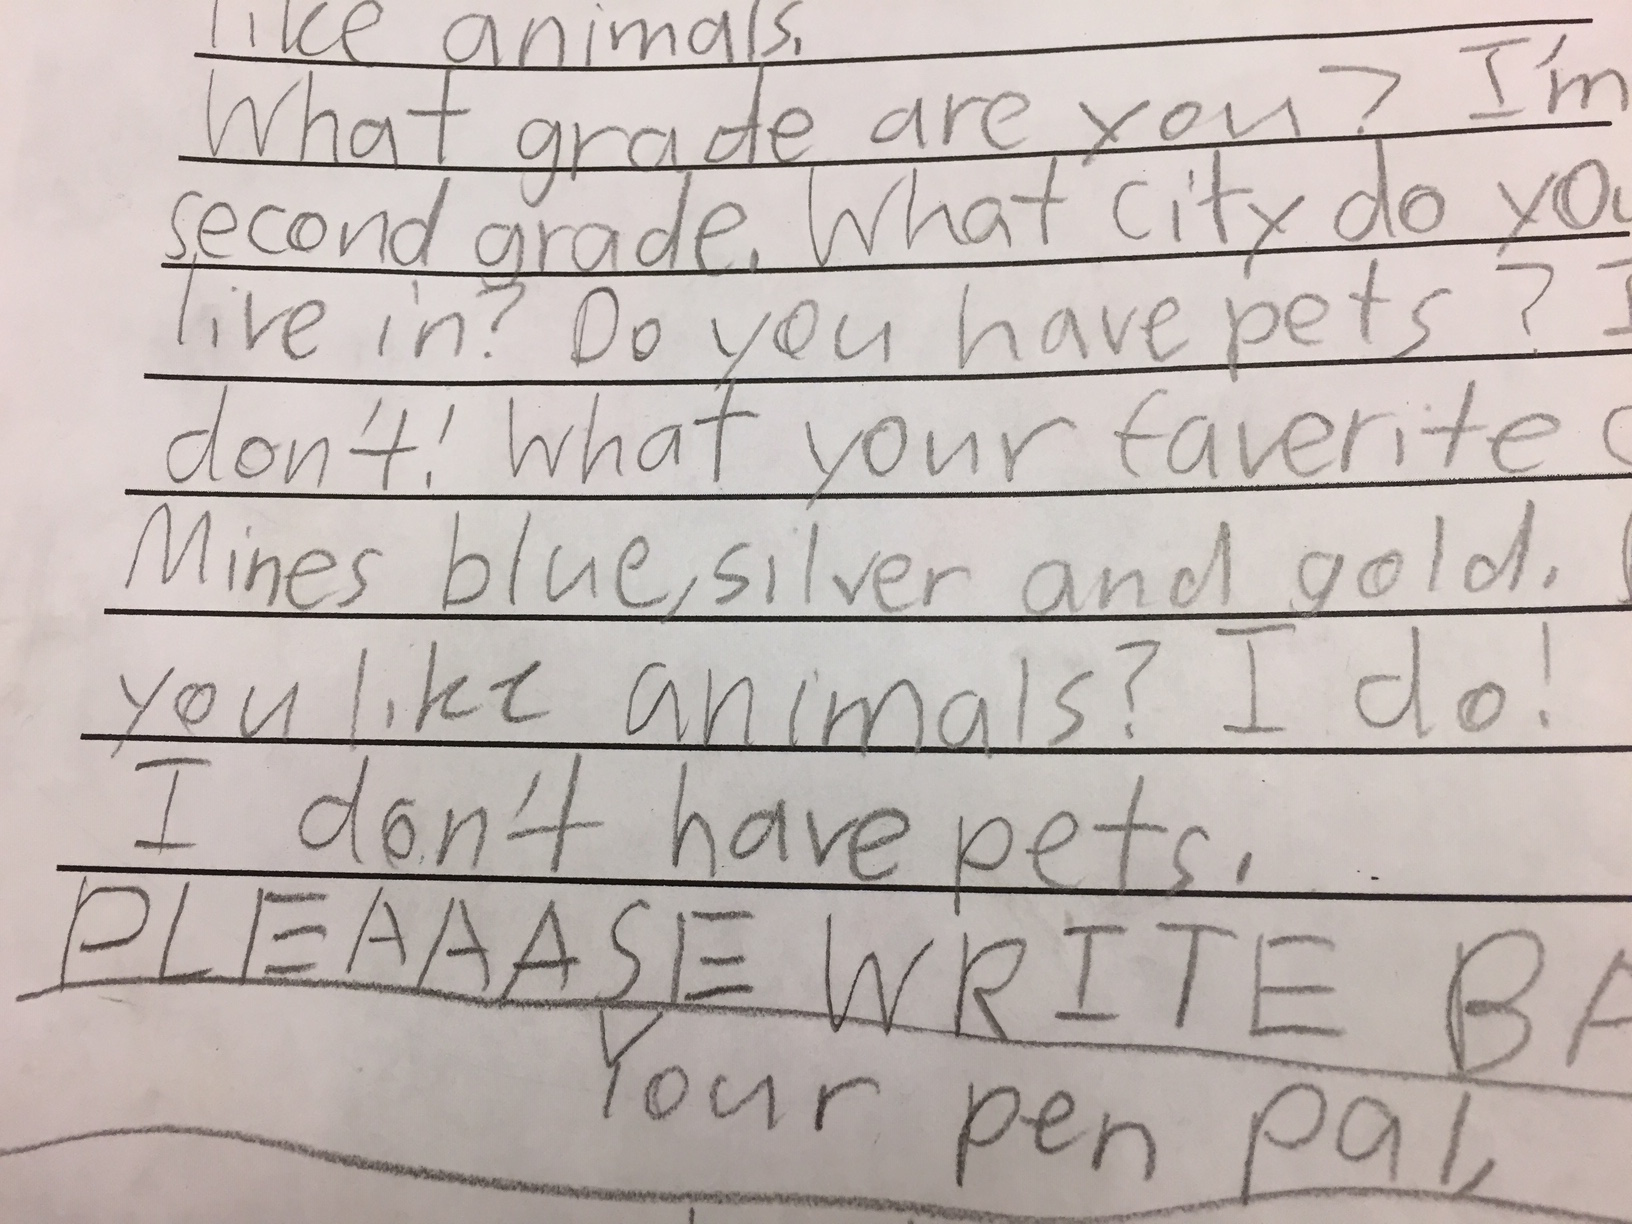 like animals.
What grade are you? I'm
second grade. What city do you
live in? Do you have pets? I
don't! What your faverite
Mines blue, silver and gold.
you like animals? I do!
I don't have pets.
PLEAAASE WRITE BA
Your pen pal,